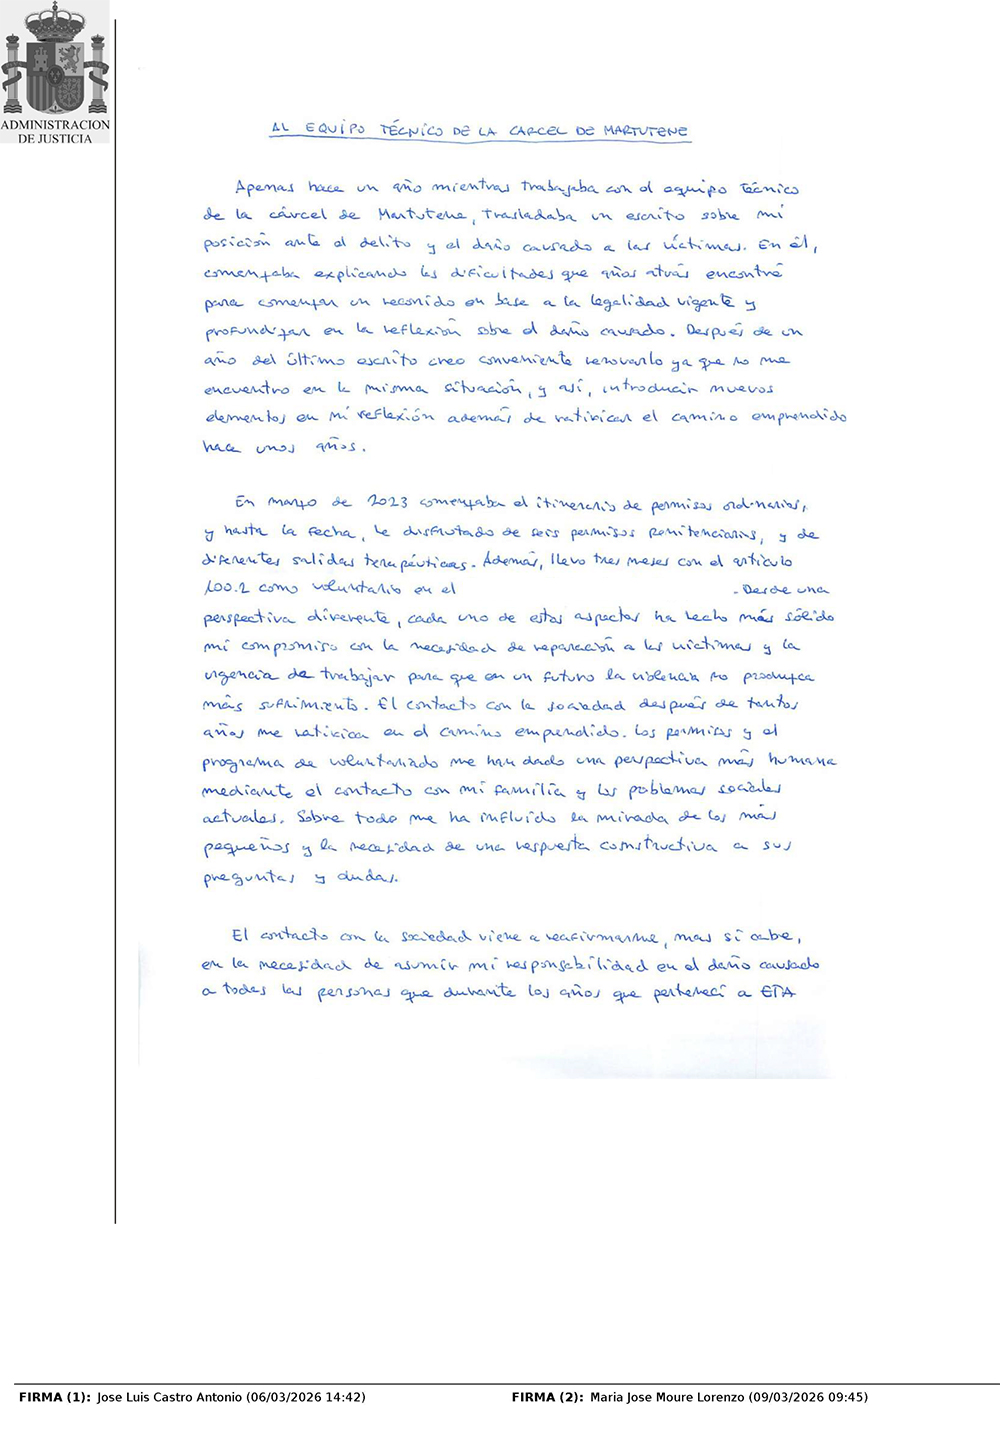 ADMINISTRACION
DE JUSTICIA
AL EQUIPO TÉCNICO DE LA CARCEL DE MARTUTENE
Apenas hace un año mientras trabajaba con el equipo técnico
de la cárcel de Martutene, trasladaba un escrito sobre mi
posición ante el delito y el daño causado a las víctimas. En él,
comenzaba explicando las dificultades que años atrás encontré
para comenzar un recorrido en base a la legalidad vigente y
profundizar en la reflexión sobre el daño causado. Después de un
año del último escrito creo conveniente renovarlo ya que no me
encuentro en la misma situación, y así, introducir nuevos
elementos en mi reflexión además de ratificar el camino emprendido
hace unos años.
En marzo de 2023 comenzaba el itinerario de permisos ordinarios,
y hasta la fecha, he disfrutado de seis permisos penitenciarios, y de
diferentes salidas terapéuticas. Además, llevo tres meses con el artículo
100.2 como voluntario en el
. Desde una
perspectiva diferente, cada uno de estos aspectos ha hecho más sólido
mi compromiso con la necesidad de reparación a las víctimas y la
urgencia de trabajar para que en un futuro la violencia no produzca
más sufrimiento. El contacto con la sociedad después de tantos
años me ratifica en el camino emprendido. Los permisos y el
programa de voluntariado me han dado una perspectiva más humana
mediante el contacto con mi familia y los problemas sociales
actuales. Sobre todo me ha influido la mirada de los más
pequeños y la necesidad de una respuesta constructiva a sus
preguntas y dudas.
El contacto con la sociedad viene a reafirmarme, mas si cabe,
en la necesidad de asumir mi responsabilidad en el daño causado
a todas las personas que durante los años que pertenecí a ETA
FIRMA (1): Jose Luis Castro Antonio (06/03/2026 14:42)
FIRMA (2): Maria Jose Moure Lorenzo (09/03/2026 09:45)